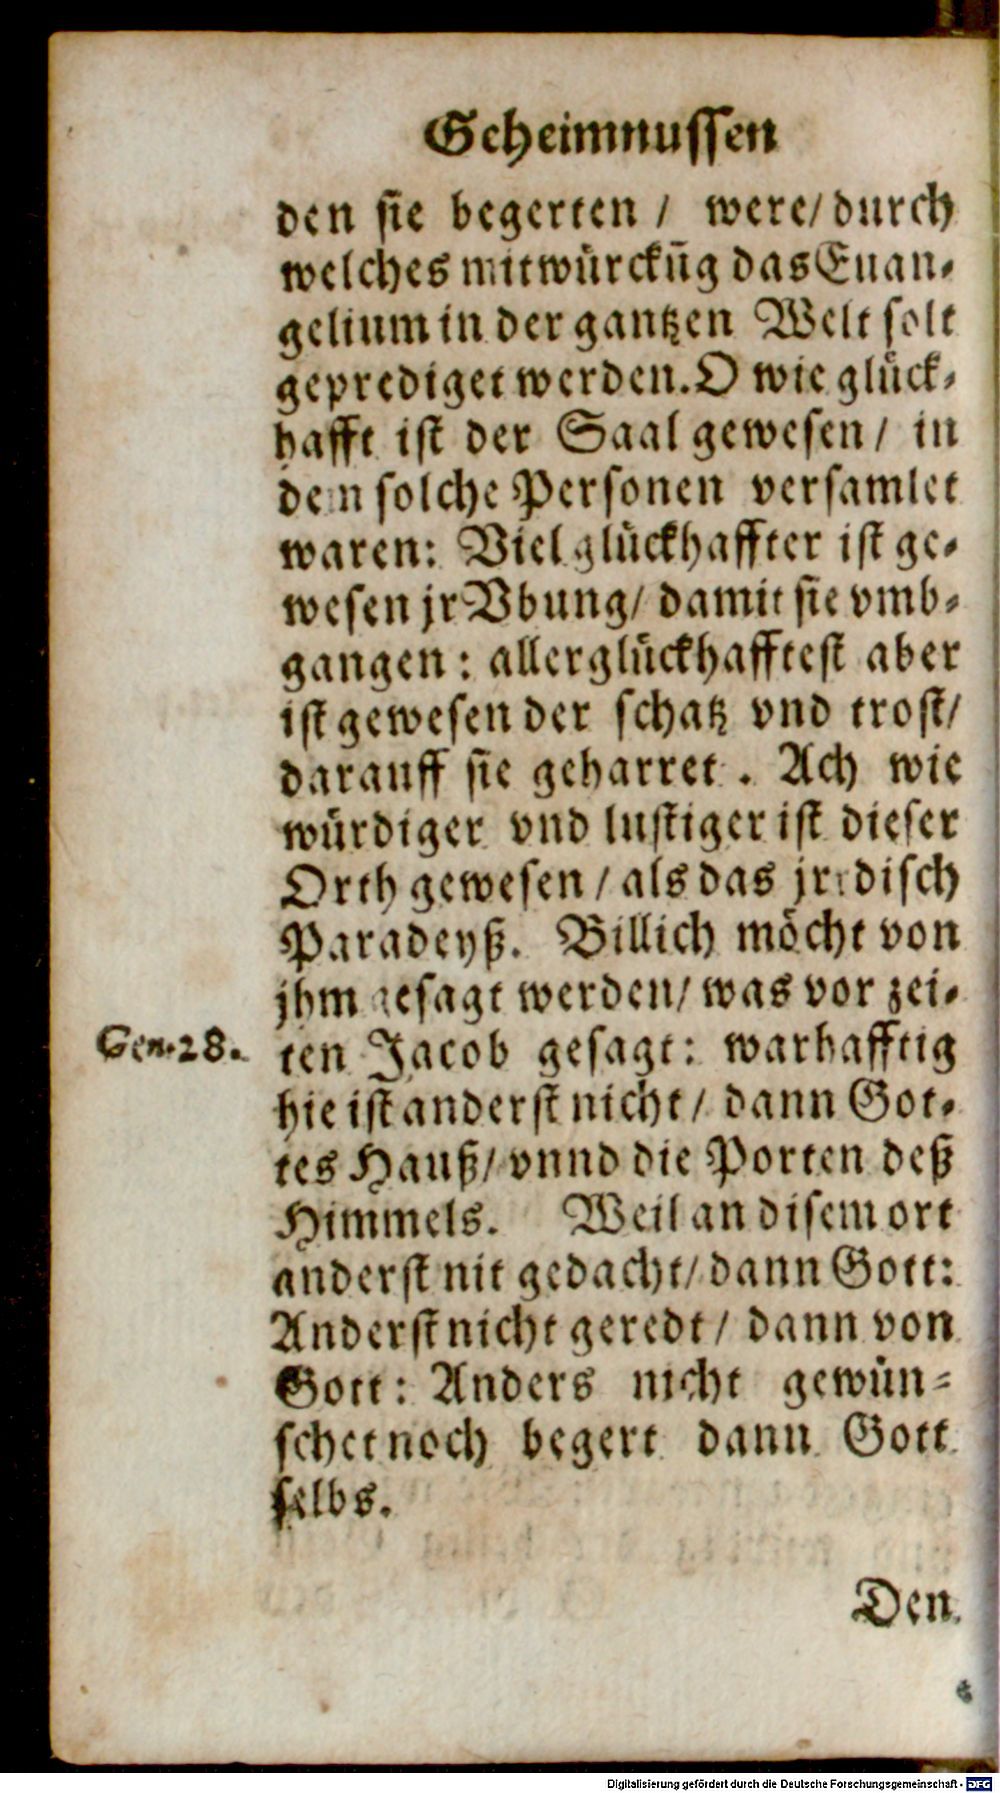 Geheimnussen
den sie begerten / were/ durch
welches mitwürckūg das Euan-
gelium in der gantzen Welt solt
geprediget werden. O wie glück-
hafft ist der Saal gewesen / in
dem solche Personen versamlet
waren: Viel glückhaffter ist ge-
wesen jr Vbung/ damit sie vmb-
gangen: allerglückhafftest aber
ist gewesen der schatz vnd trost/
darauff sie geharret. Ach wie
würdiger vnd lustiger ist dieser
Orth gewesen / als das jrrdisch
Paradeyß. Billich möcht von
jhm gesagt werden/ was vor zei-
Gen. 28. ten Jacob gesagt: warhafftig
hie ist anderst nicht / dann Got-
tes Hauß/ vnnd die Porten deß
Himmels. Weil an disem ort
anderst nit gedacht/ dann Gott:
Anderst nicht geredt / dann von
Gott: Anders nicht gewün-
schet noch begert dann Gott
selbs.
Den
Digitalisierung gefördert durch die Deutsche Forschungsgemeinschaft - DFG